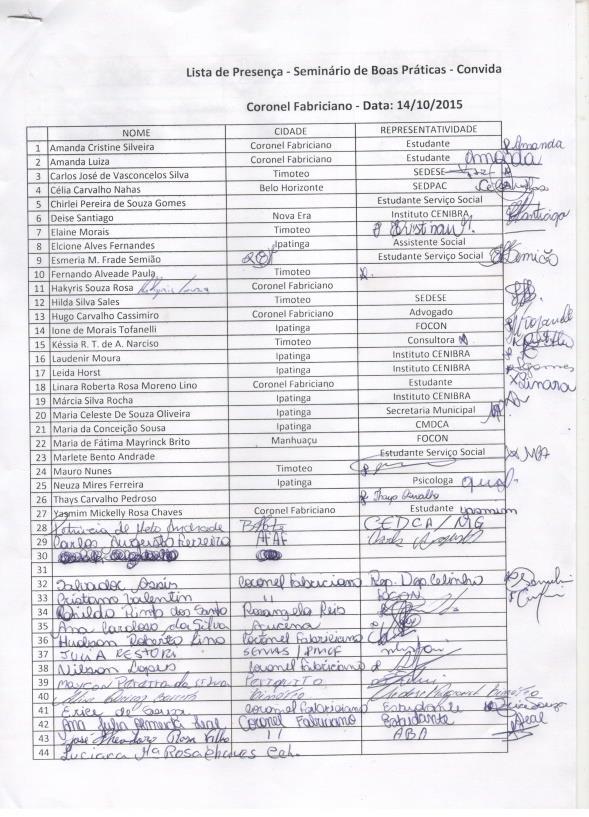 Lista de Presença - Seminário de Boas Práticas - Convida
Coronel Fabriciano - Data: 14/10/2015
NOME CIDADE REPRESENTATIVIDADE
1 Amanda Cristine Silveira Coronel Fabriciano Estudante Amanda
2 Amanda Luiza Coronel Fabriciano Estudante Amanda
3 Carlos José de Vasconcelos Silva Timoteo SEDESE
4 Célia Carvalho Nahas Belo Horizonte SEDPAC
5 Chirlei Pereira de Souza Gomes Estudante Serviço Social
6 Deise Santiago Nova Era Instituto CENIBRA Santiago
7 Elaine Morais Timoteo
8 Elcione Alves Fernandes Ipatinga Assistente Social
9 Esmeria M. Frade Semião Estudante Serviço Social Semião
10 Fernando Alveade Paula Timoteo
11 Hakyris Souza Rosa Hakyris Souza Coronel Fabriciano
12 Hilda Silva Sales Timoteo SEDESE
13 Hugo Carvalho Cassimiro Coronel Fabriciano Advogado
14 Ione de Morais Tofanelli Ipatinga FOCON
15 Késsia R. T. de A. Narciso Timoteo Consultora
16 Laudenir Moura Ipatinga Instituto CENIBRA
17 Leida Horst Ipatinga Instituto CENIBRA
18 Linara Roberta Rosa Moreno Lino Coronel Fabriciano Estudante Linara
19 Márcia Silva Rocha Ipatinga Instituto CENIBRA
20 Maria Celeste De Souza Oliveira Ipatinga Secretaria Municipal
21 Maria da Conceição Sousa Ipatinga CMDCA
22 Maria de Fátima Mayrinck Brito Manhuaçu FOCON
23 Marlete Bento Andrade Estudante Serviço Social
24 Mauro Nunes Timoteo
25 Neuza Mires Ferreira Ipatinga Psicologa
26 Thays Carvalho Pedroso Thays Carvalho
27 Yasmim Mickelly Rosa Chaves Coronel Fabriciano Estudante Yasmim
28 de Melo Andrade CEDCA/MG
29 Carlos Augusto Ferreira Carlos Augusto
30
31
32 Salvador Assis Coronel Fabriciano Rep. Dep. Celinho
33 Cristiano Valentin 11 FOCON
34 Ronildo Pinto dos Santos Rosangela Reis
35 Ana Cardoso da Silva Açucena
36 Hudson Roberto Lino Coronel Fabriciano
37 JULIA RESTORI SERVAS / PMCF
38 Nilson Lopes Coronel Fabriciano
39 Periquito
40 Timóteo
41 Erica de Souza Coronel Fabriciano Estudante
42 Ana Julia Coronel Fabriciano Estudante Leal
43 José Theodoro Rosa Filho 11 ABA
44 Luciana Mª Rosa